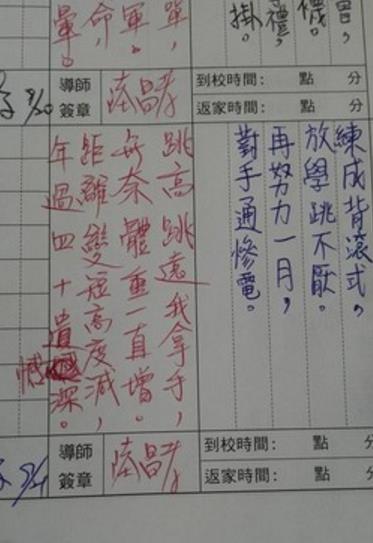 襪。
禮，
掛。
單，
軍。
命，
暈。
到校時間： 點 分
返家時間： 點 分
導師
簽章
練成背滾式，
放學跳不厭。
再努力一月，
對手通慘電。
跳高跳遠我拿手，
無奈體重一直增。
距離變短高度減，
年過四十遺憾深。
到校時間： 點 分
返家時間： 點 分
導師
簽章